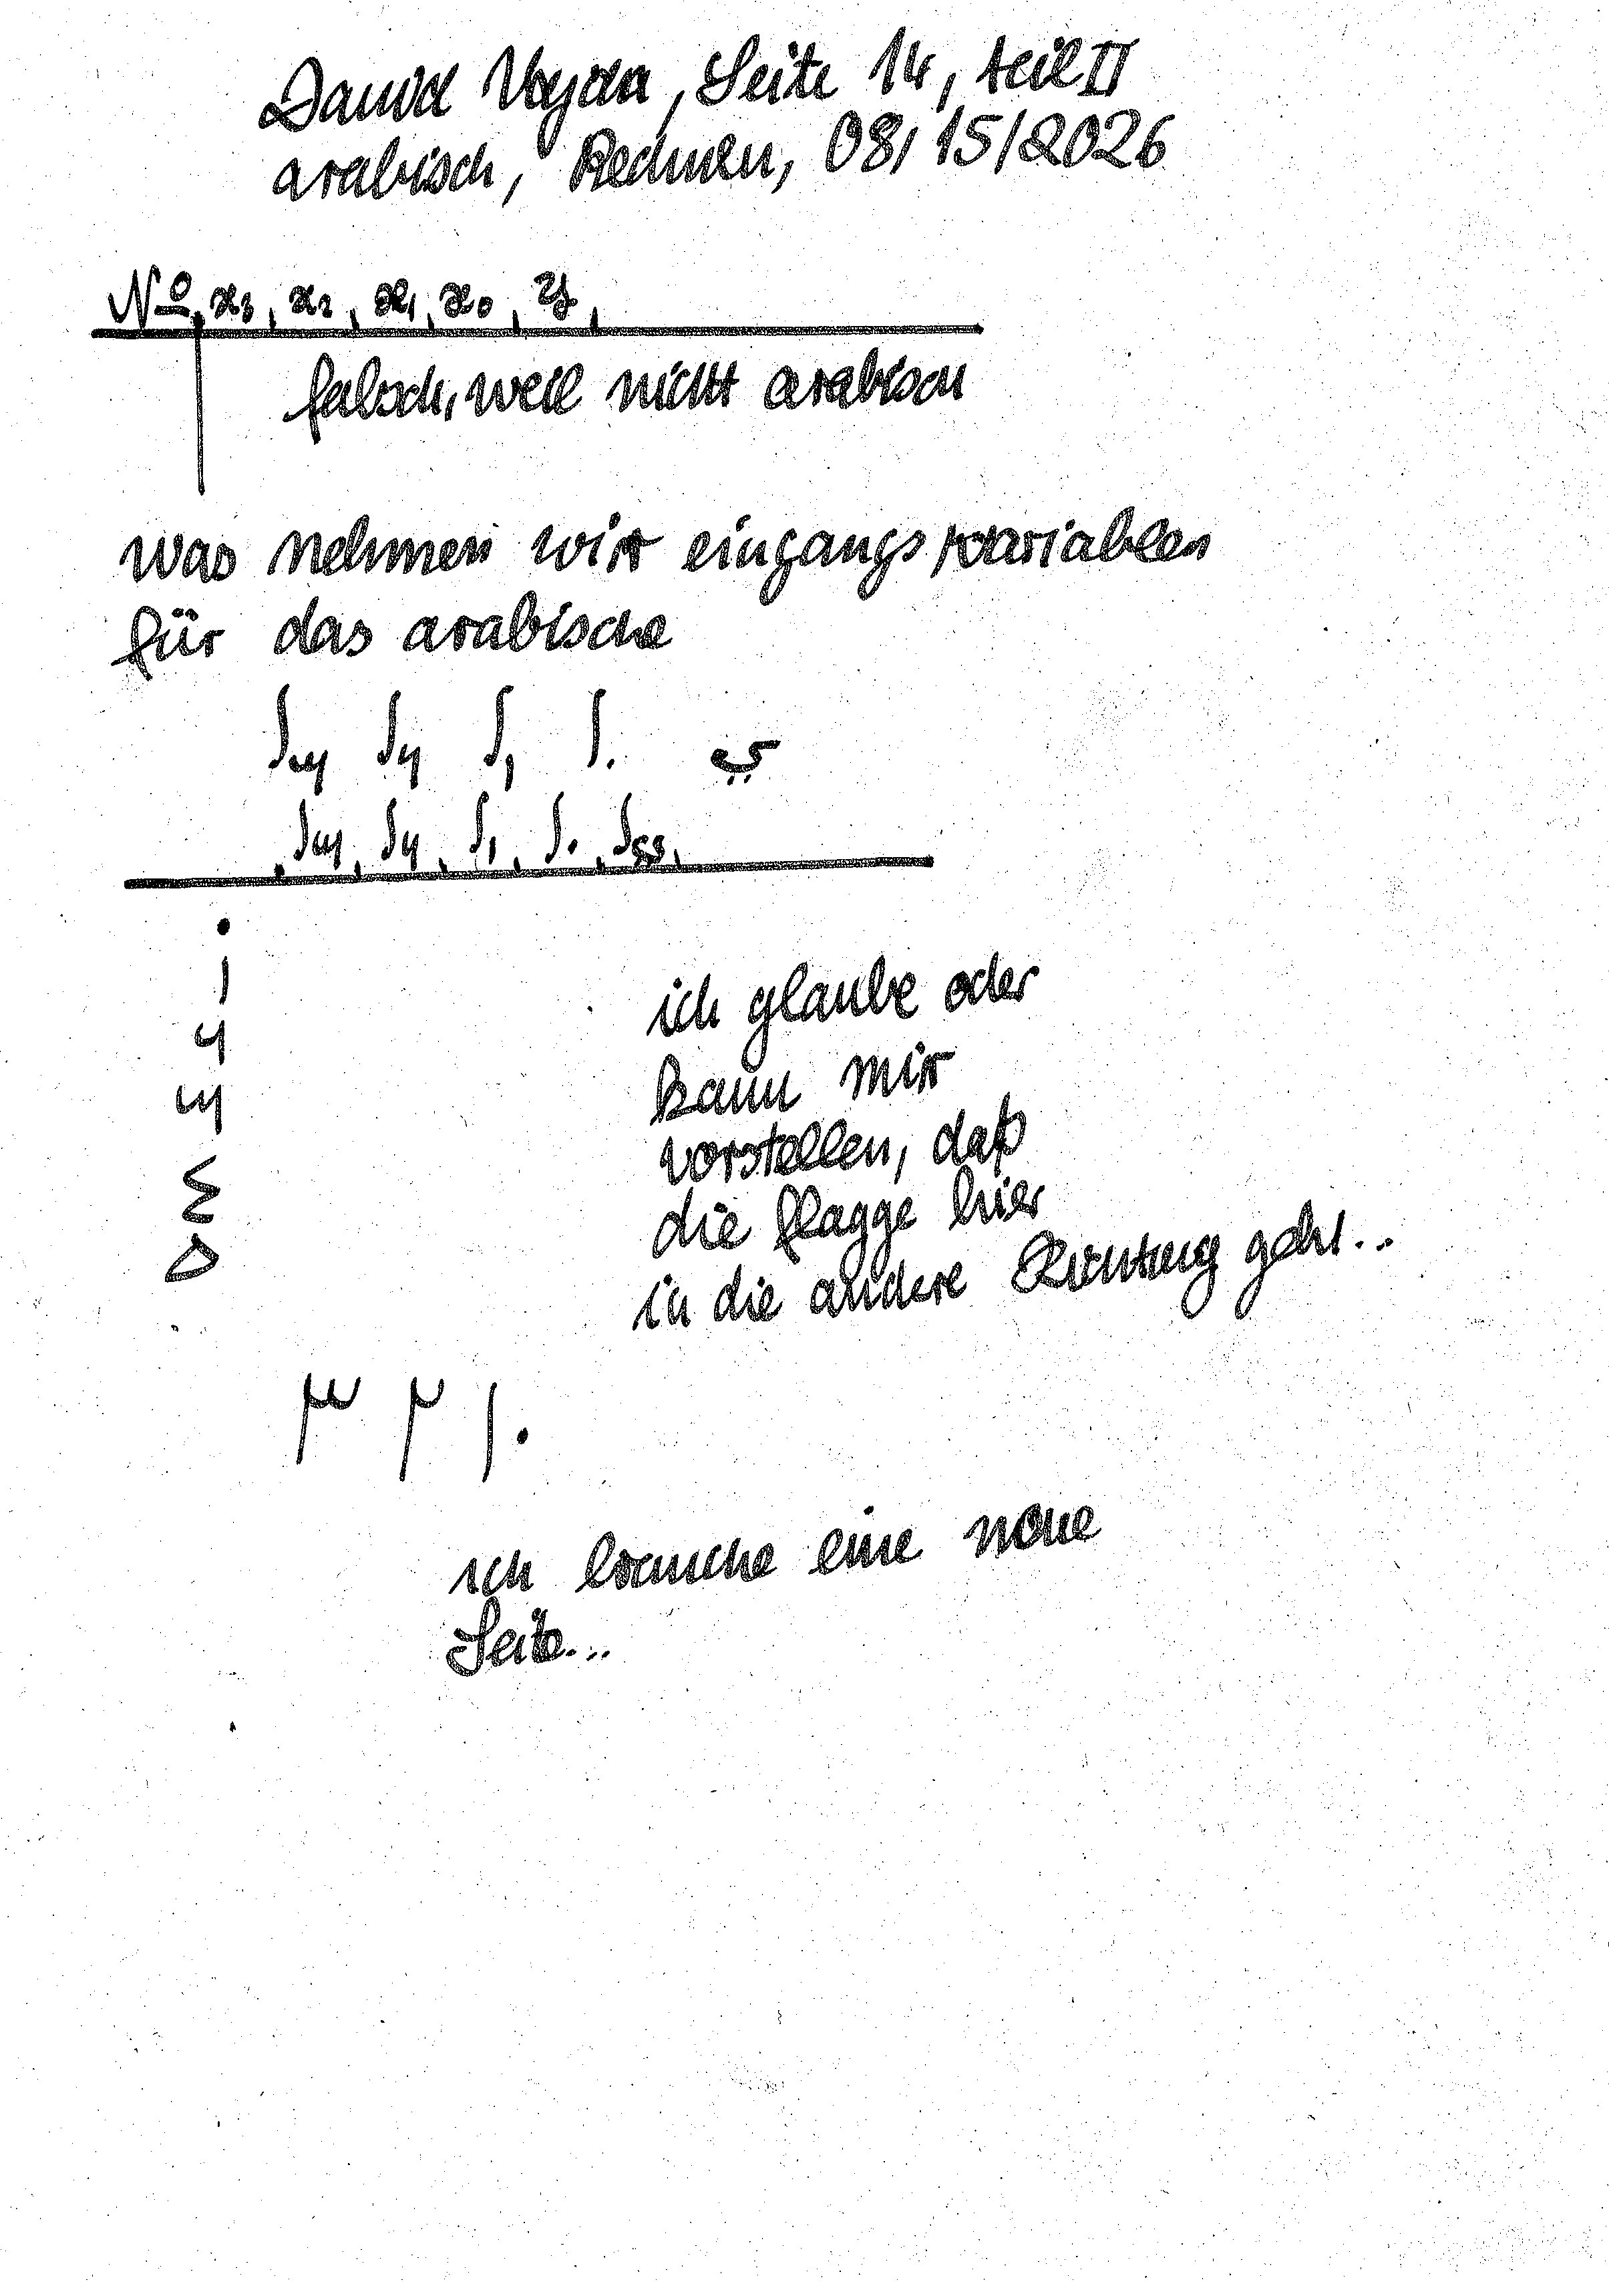 David Vajda, Seite 14, teil II
arabisch, Rechnen, 08/15/2026
Nº x3 x2 x1 x0 y
falsch, weil nicht arabisch
was nehmen wir eingangsvariablen
für das arabische
ي
ich glaube oder
kann mir
vorstellen, daß
die flagge hier
in die andere Richtung geht...
٣ ٢ ١ ٠
ich brauche eine neue
Seite...